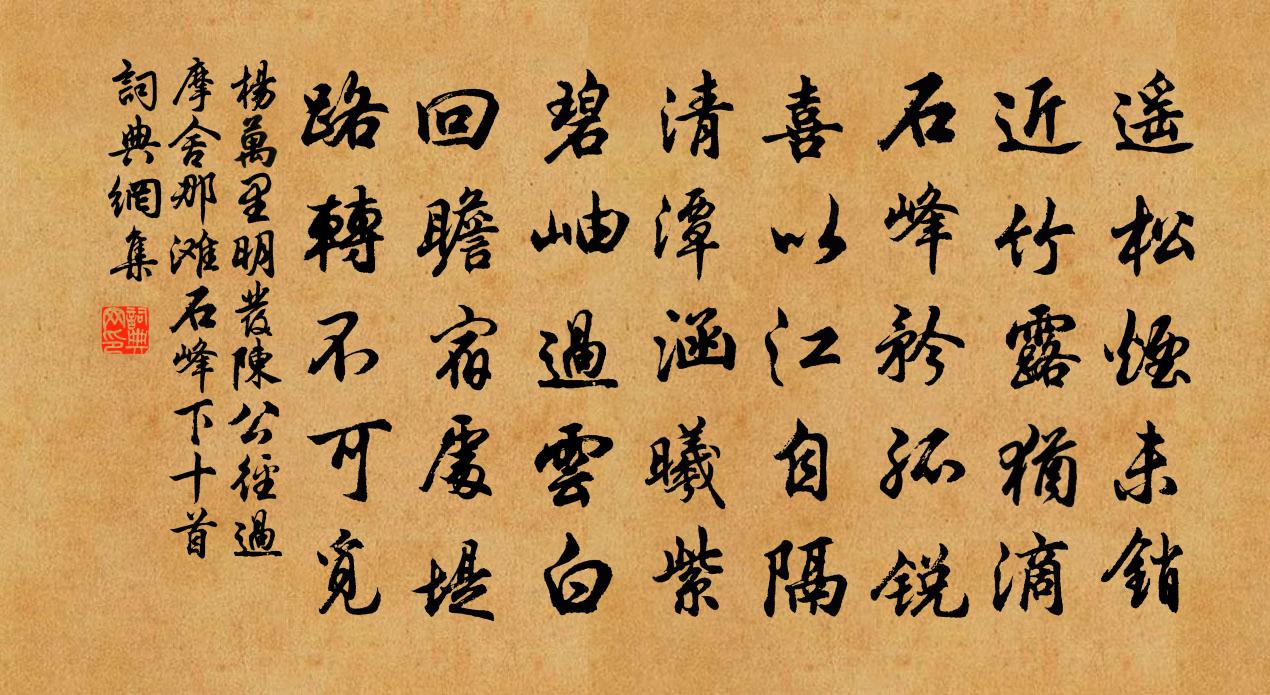 遥松煙未銷
近竹露猶滴
石峰矜孤銳
喜以江自隔
清潭涵曦紫
碧岫過雲白
回瞻宿處堤
路轉不可覓
楊萬里明發陳公徑過
摩舍那滩石峰下十首
詞典網集